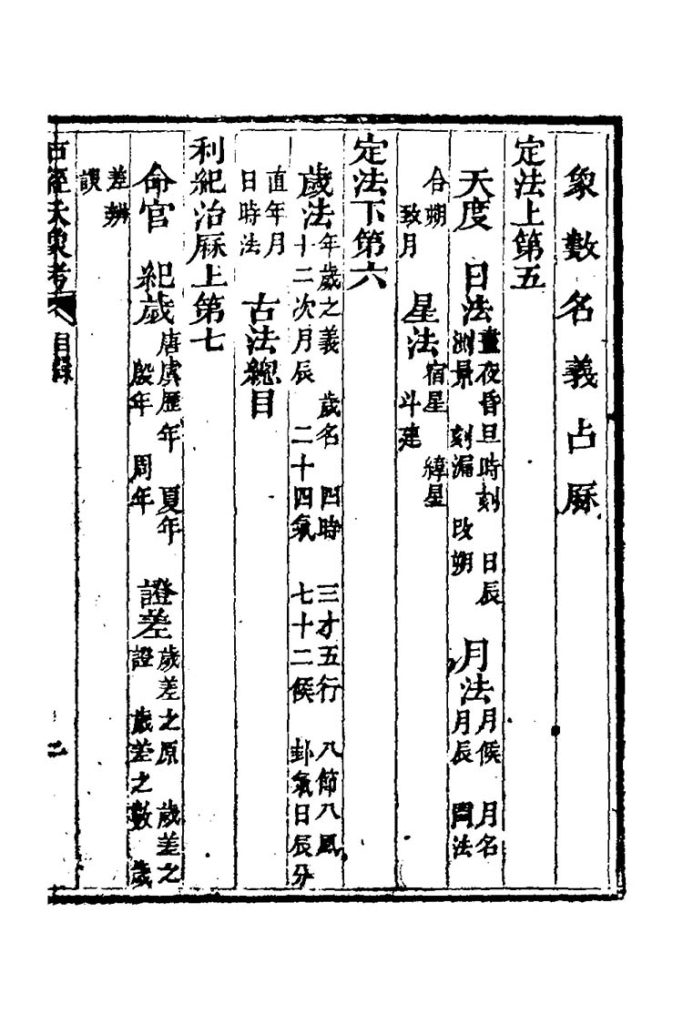 象數名義占厤
定法上第五
天度 日法 晝夜昏旦時刻 日辰 測景 刻漏 改朔 月法 月候 月名 月辰 閏法
合朔 致月 星法 宿星 緯星 斗建
定法下第六
歲法 年歲之義 歲名 四時 三才五行 八節八風 十二次月辰 二十四氣 七十二候 卦氣日辰分
直年月 日時法 古法總目
利紀治厤上第七
命官 紀歲 唐虞歷年 夏年 殷年 周年 證差 歲差之原 歲差之證 歲差之數 歲
差辨 誤
古經天象考 目錄 二